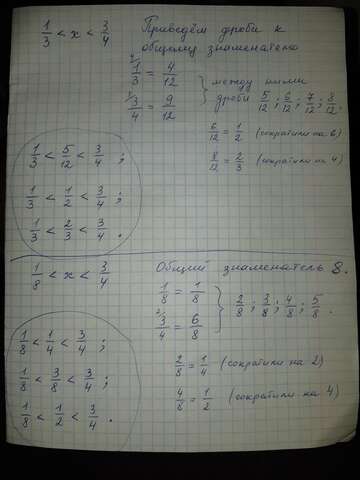 1/3 < x < 3/4
Приведём дроби к
общему знаменателю
4/ 1/3 = 4/12
3/ 3/4 = 9/12
} между ними
дроби 5/12 ; 6/12 ; 7/12 ; 8/12 .
6/12 = 1/2 (сократили на 6)
8/12 = 2/3 (сократили на 4)
1/3 < 5/12 < 3/4 ;
1/3 < 1/2 < 3/4 ;
1/3 < 2/3 < 3/4 .
1/8 < x < 3/4
Общий знаменатель 8.
1/8 = 1/8
2/ 3/4 = 6/8
} 2/8 ; 3/8 ; 4/8 ; 5/8 .
2/8 = 1/4 (сократили на 2)
4/8 = 1/2 (сократили на 4)
1/8 < 1/4 < 3/4 ;
1/8 < 3/8 < 3/4 ;
1/8 < 1/2 < 3/4 .